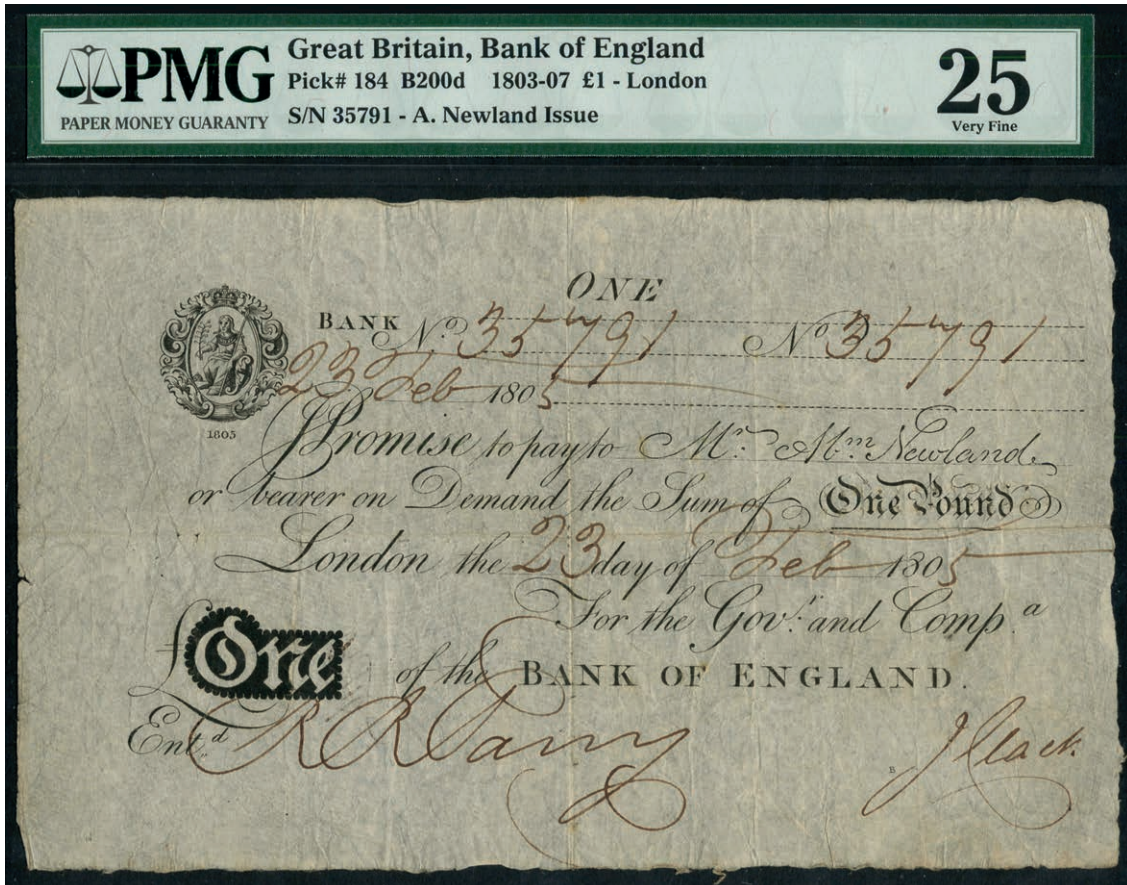 PMG
PAPER MONEY GUARANTY
Great Britain, Bank of England
Pick# 184 B200d 1803-07 £1 - London
S/N 35791 - A. Newland Issue
25
Very Fine
ONE
BANK No. 35791 No 35791
23 Feb 1805
1805
I Promise to pay to Mr. Abm. Newland
or bearer on Demand the Sum of One Pound
London the 23 day of Feb 1805
For the Govr. and Compa.
£One of the BANK OF ENGLAND.
Entd.
B